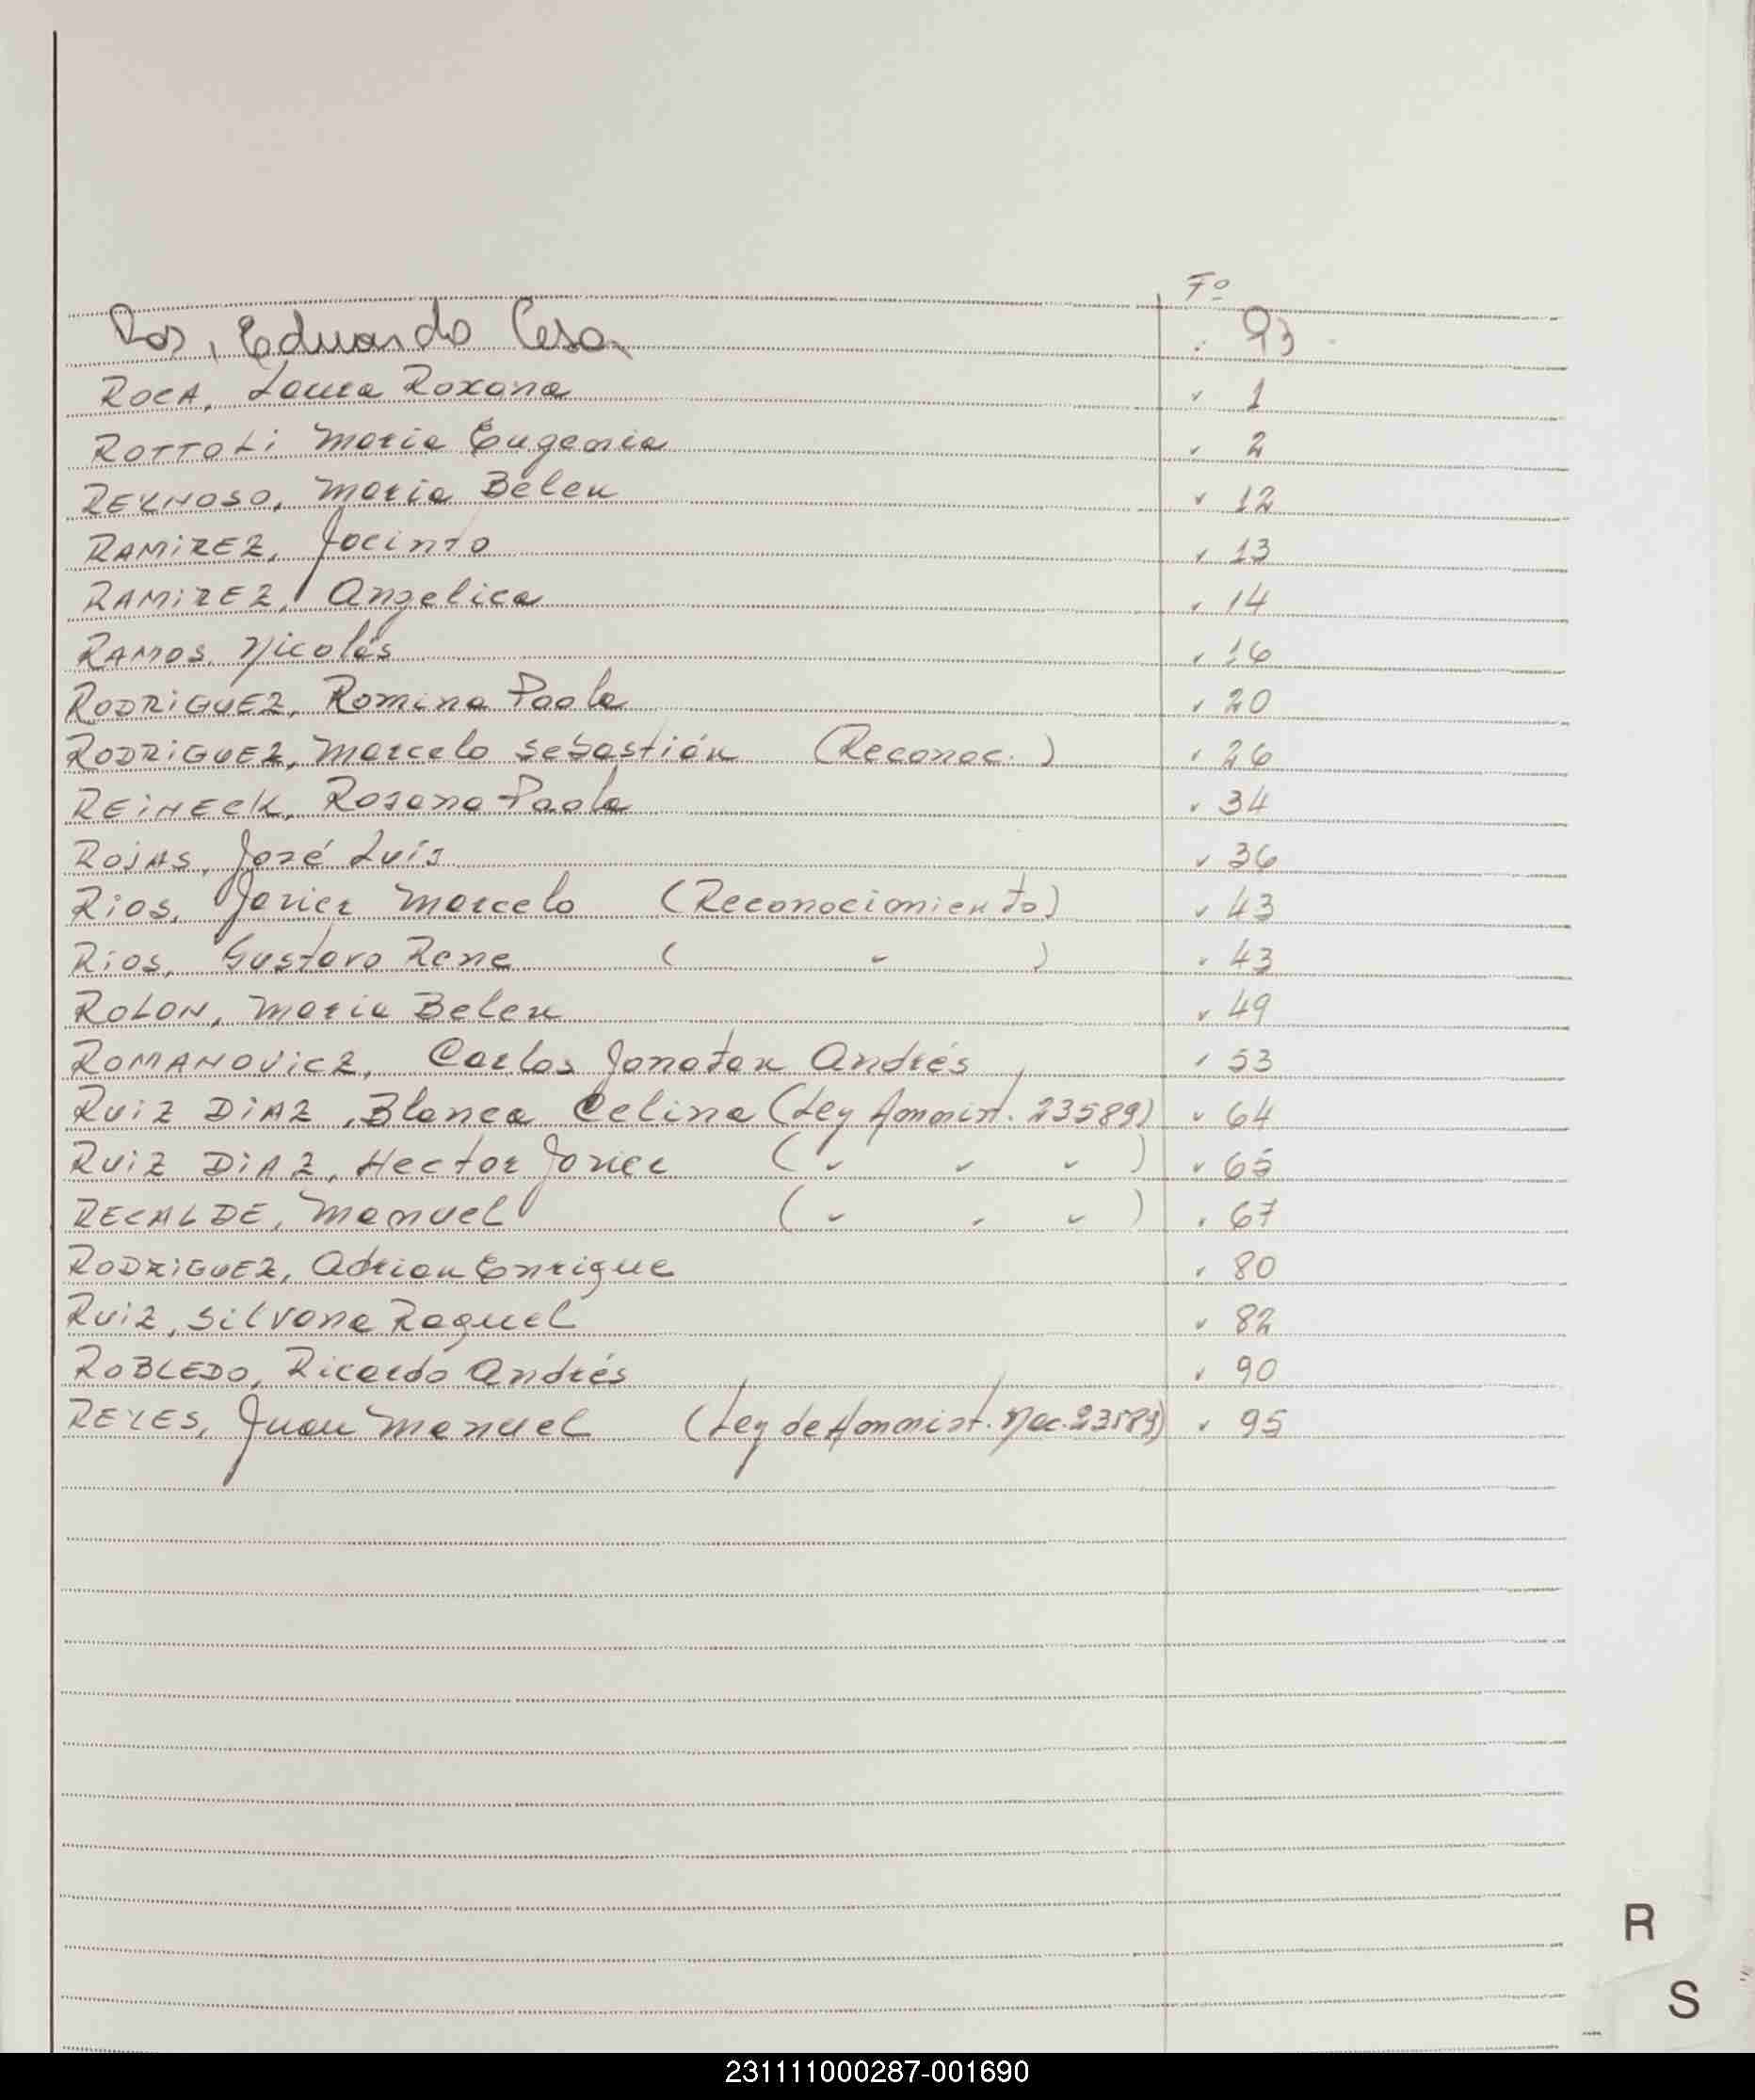 Fº
Ros, Eduardo Cesar 93
ROCA, Laura Roxana 1
ROTTOLi Maria Eugenia 2
REYNOSO, Maria Belen 12
RAMiREZ, Jacinto 13
RAMiREZ, Angelica 14
RAMOS, Nicolás 16
RODRiGUEZ, Romina Paola 20
RODRiGUEZ, Marcelo Sebastián (Reconoc.) 26
REiNECK, Rosana Paola 34
ROJAS, José Luís 36
Rios, Javier Marcelo (Reconocimiento) 43
Rios, Gustavo Rene ( " ) 43
ROLON, Maria Belen 49
ROMANOViCZ, Carlos Jonatan Andrés 53
RUiZ DiAZ, Blanca Celina (Ley Amnist. 23589) 64
RUiZ DiAZ, Hector Javier ( " " " ) 65
RECALDE, Manuel ( " " " ) 67
RODRiGUEZ, Adrian Enrique 80
RUiZ, Silvana Raquel 82
ROBLEDO, Ricardo Andrés 90
REYES, Juan Manuel (Ley de Amnist. Nac. 23589) 95
R
S
231111000287-001690